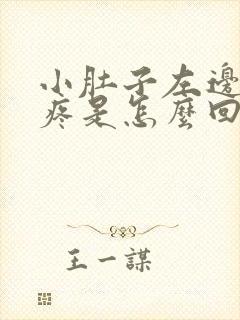 小肚子左邊
疼是怎麼回
王一謀